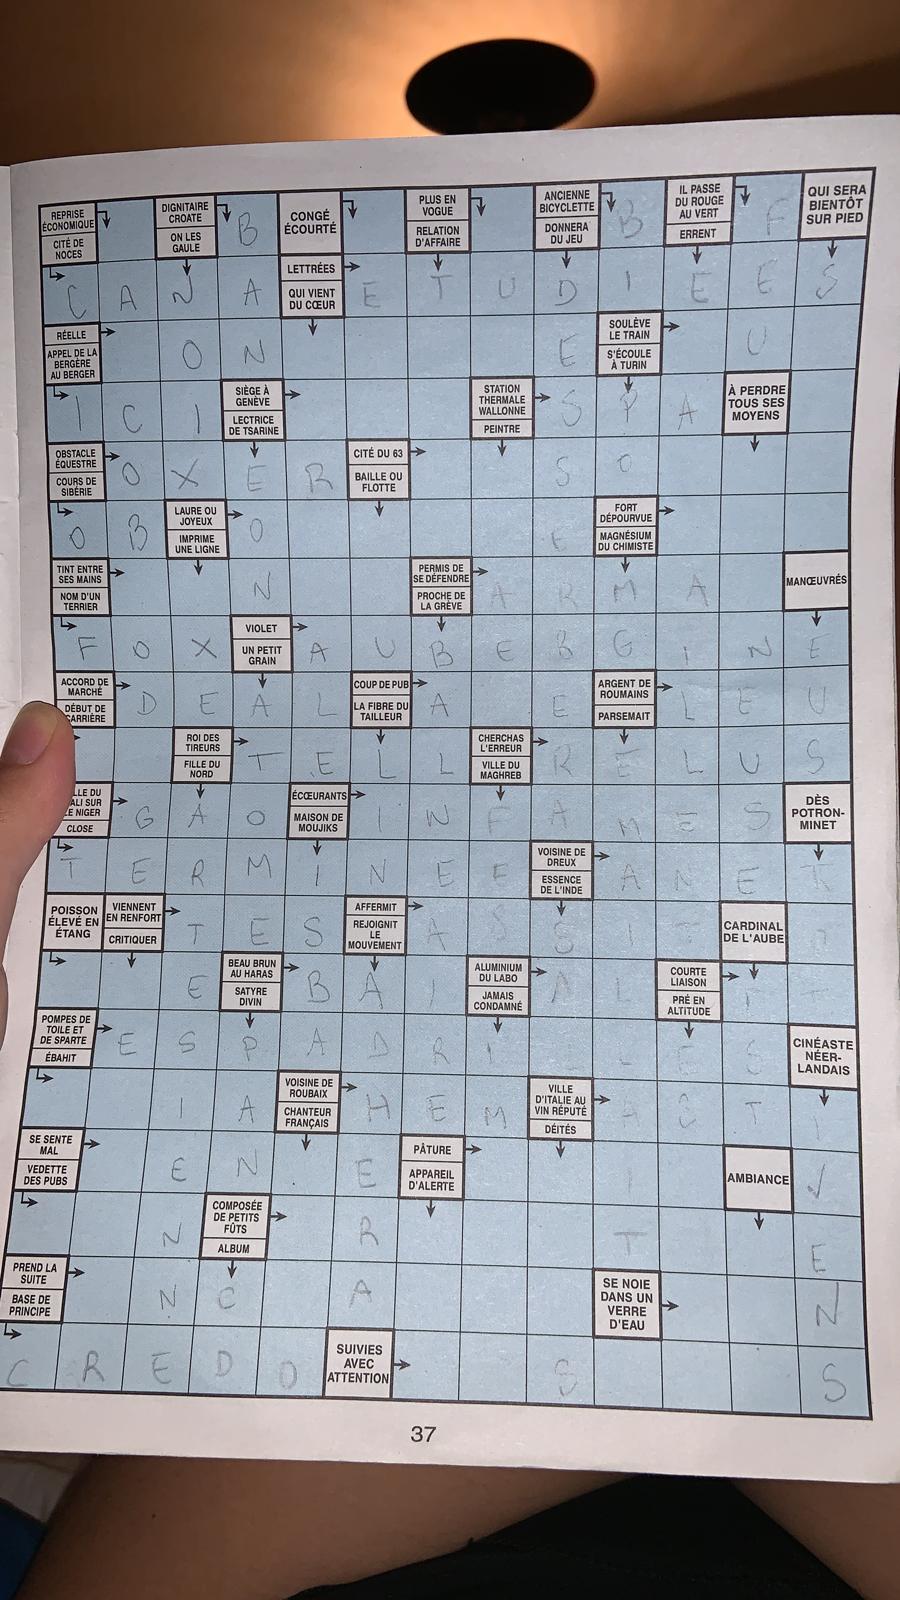 REPRISE ÉCONOMIQUE
CITÉ DE NOCES
DIGNITAIRE CROATE
ON LES GAULE
B
CONGÉ ÉCOURTÉ
PLUS EN VOGUE
RELATION D'AFFAIRE
ANCIENNE BICYCLETTE
DONNERA DU JEU
B
IL PASSE DU ROUGE AU VERT
ERRENT
F
QUI SERA BIENTÔT SUR PIED
C A N A
LETTRÉES
QUI VIENT DU CŒUR
E T U D I E E S
RÉELLE
APPEL DE LA BERGÈRE AU BERGER
O N
E
SOULÈVE LE TRAIN
S'ÉCOULE À TURIN
U
I C I
SIÈGE À GENÈVE
LECTRICE DE TSARINE
STATION THERMALE WALLONNE
PEINTRE
S P A
À PERDRE TOUS SES MOYENS
OBSTACLE ÉQUESTRE
COURS DE SIBÉRIE
O X E R
CITÉ DU 63
BAILLE OU FLOTTE
S O
O B
LAURE OU JOYEUX
IMPRIME UNE LIGNE
O
E
FORT DÉPOURVUE
MAGNÉSIUM DU CHIMISTE
TINT ENTRE SES MAINS
NOM D'UN TERRIER
N
PERMIS DE SE DÉFENDRE
PROCHE DE LA GRÈVE
A R M A
MANŒUVRÉS
F O X
VIOLET
UN PETIT GRAIN
A U B E R G I N E
ACCORD DE MARCHÉ
DÉBUT DE CARRIÈRE
D E A L
COUP DE PUB
LA FIBRE DU TAILLEUR
A E
ARGENT DE ROUMAINS
PARSEMAIT
L E U
ROI DES TIREURS
FILLE DU NORD
T E L L
CHERCHAS L'ERREUR
VILLE DU MAGHREB
R E L U S
LLE DU
ALI SUR
E NIGER
CLOSE
G A O
ÉCŒURANTS
MAISON DE MOUJIKS
I N F A M E S
DÈS POTRON-MINET
T E R M I N E E
VOISINE DE DREUX
ESSENCE DE L'INDE
A N E T
POISSON ÉLEVÉ EN ÉTANG
VIENNENT EN RENFORT
CRITIQUER
T E S
AFFERMIT
REJOIGNIT LE MOUVEMENT
A S S I T
CARDINAL DE L'AUBE
E
BEAU BRUN AU HARAS
SATYRE DIVIN
B A I
ALUMINIUM DU LABO
JAMAIS CONDAMNÉ
A L
COURTE LIAISON
PRÉ EN ALTITUDE
POMPES DE TOILE ET DE SPARTE
ÉBAHIT
E S P A D R I L L E S
CINÉASTE NÉERLANDAIS
I A
VOISINE DE ROUBAIX
CHANTEUR FRANÇAIS
H E M
VILLE D'ITALIE AU VIN RÉPUTÉ
DÉITÉS
A S T I
SE SENTE MAL
VEDETTE DES PUBS
E N E
PÂTURE
APPAREIL D'ALERTE
I
AMBIANCE
V
N
COMPOSÉE DE PETITS FÛTS
ALBUM
R T E
PREND LA SUITE
BASE DE PRINCIPE
N C A
SE NOIE DANS UN VERRE D'EAU
N
C R E D O
SUIVIES AVEC ATTENTION
S S
37